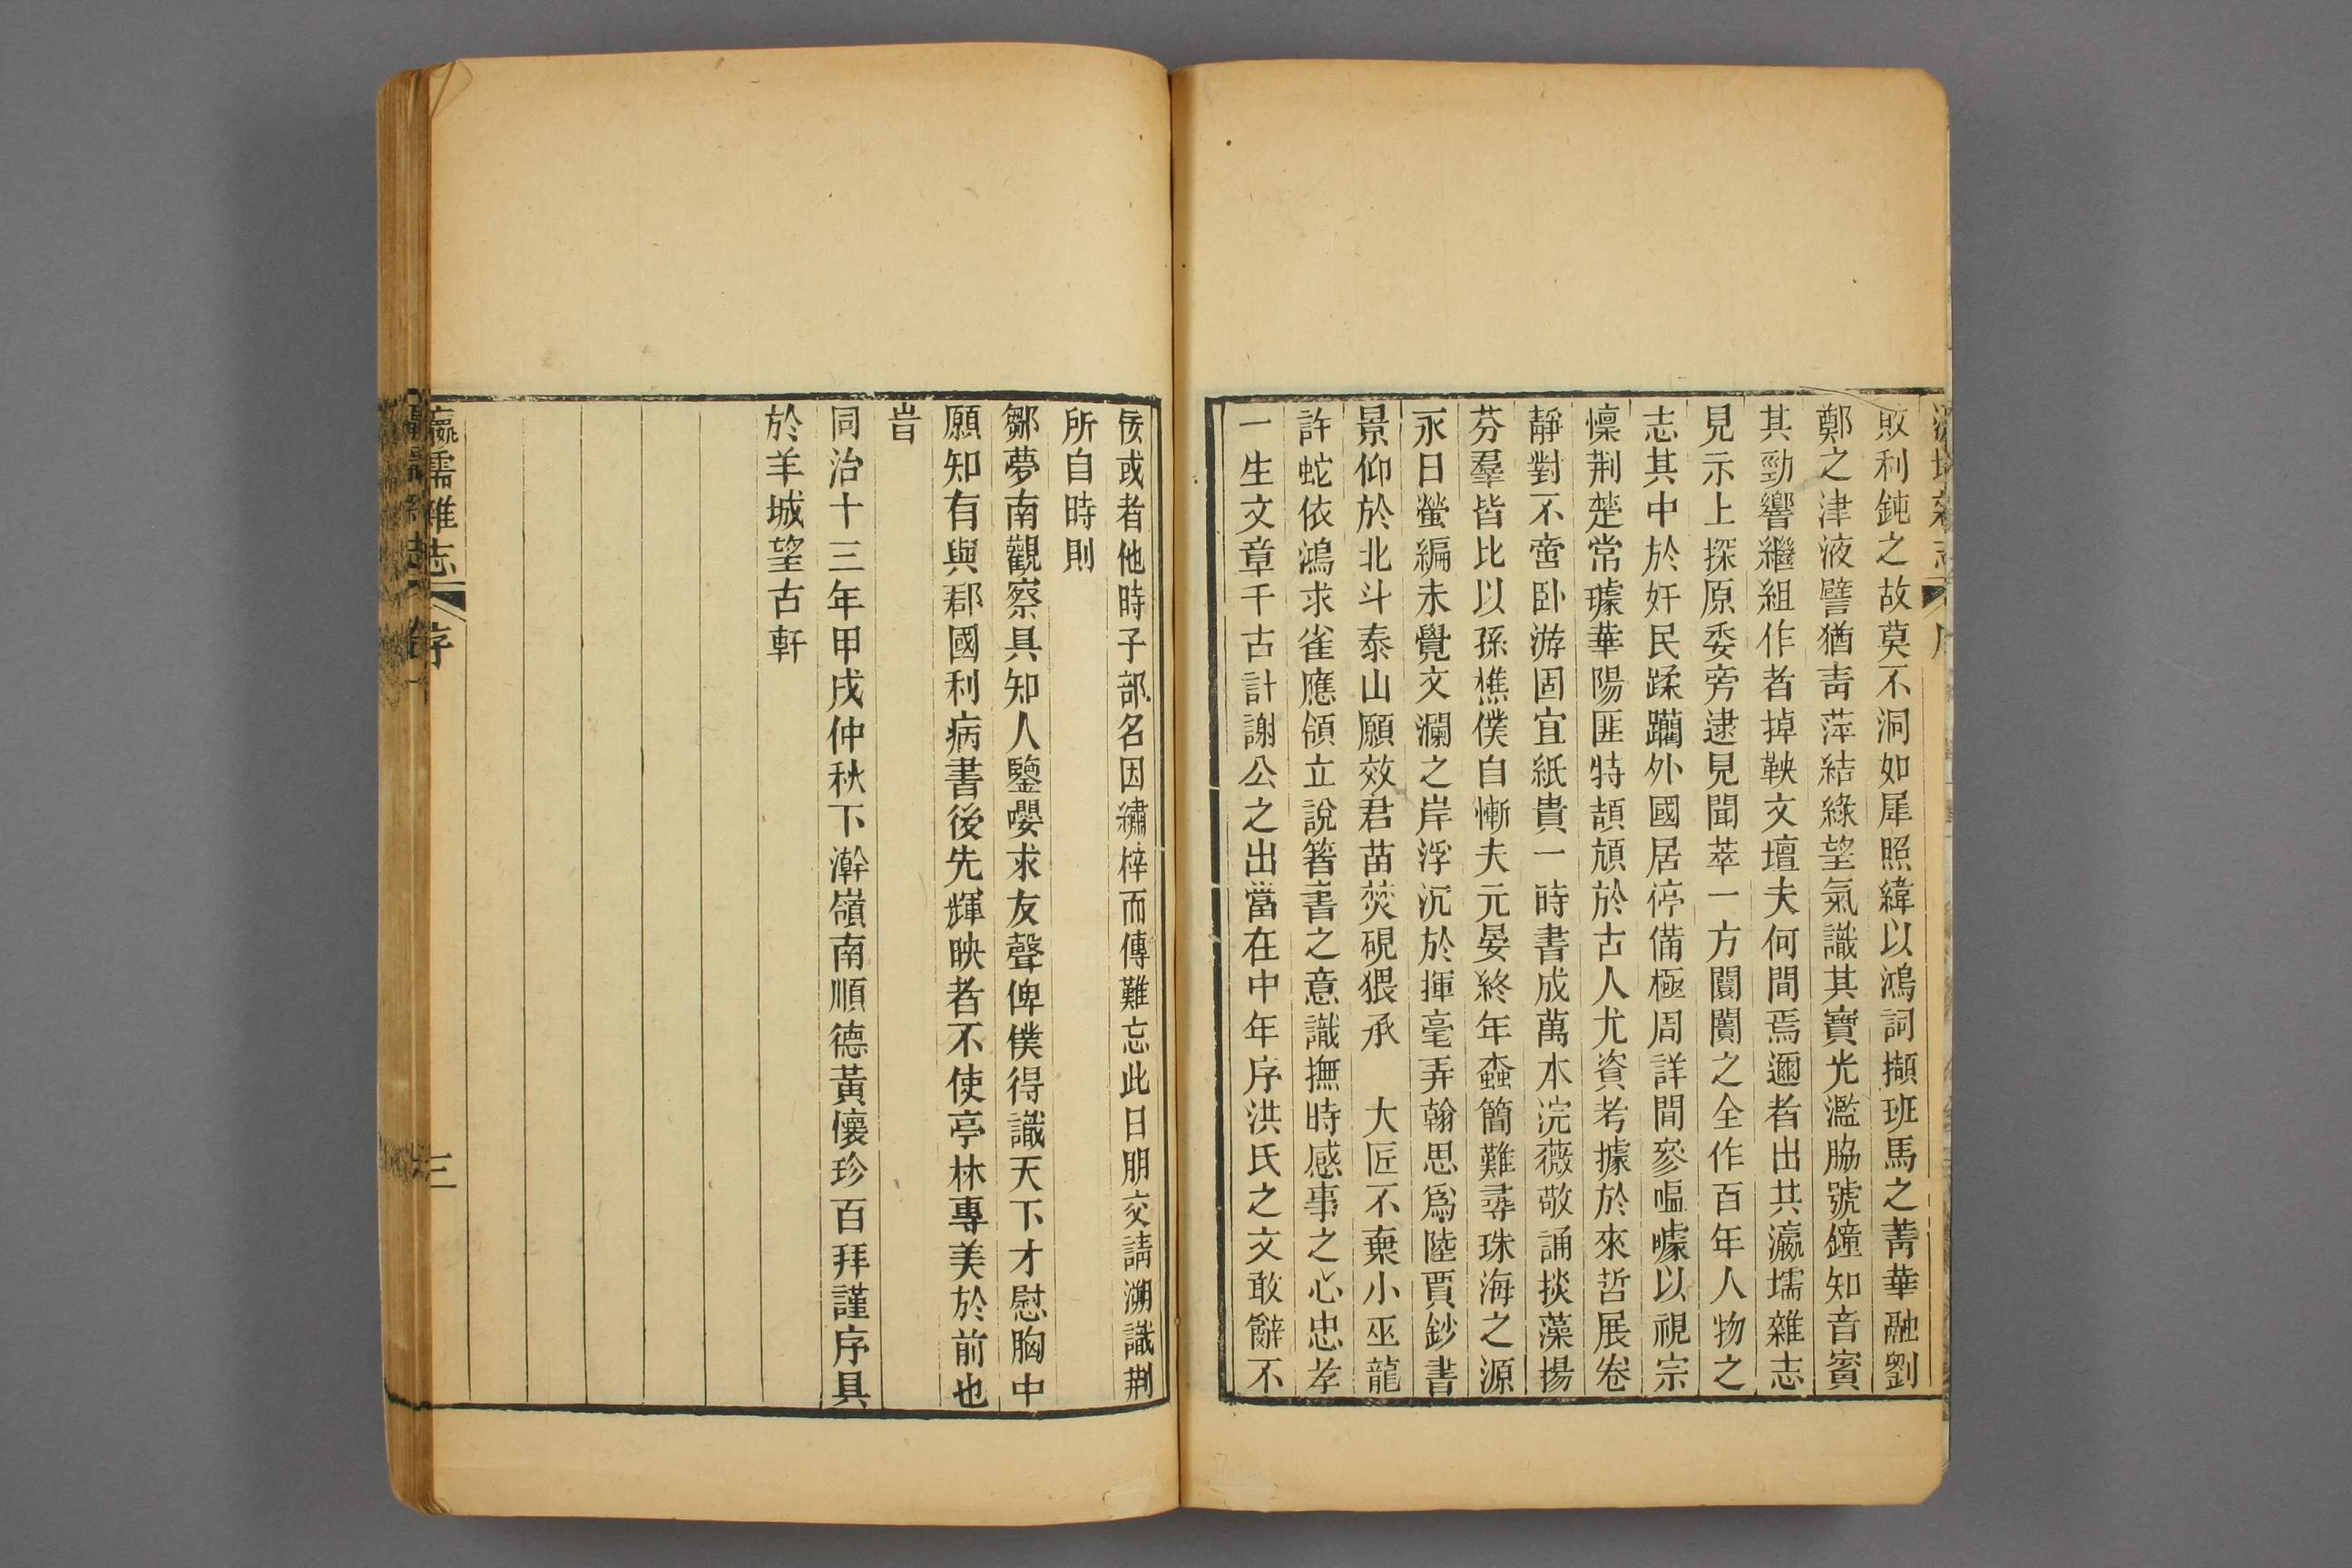 敗利鈍之故莫不洞如犀照緯以鴻詞擷班馬之菁華融劉
鄭之津液譬猶靑萍結綠望氣識其寶光濫脇號鐘知音賓
其勁響繼組作者掉鞅文壇夫何間焉邇者出其瀛壖雜志
見示上探原委旁逮見聞萃一方闤闠之全作百年人物之
志其中於奸民蹂躪外國居停備極周詳間參嘔噱以視宗
懍荆楚常璩華陽匪特頡頏於古人尤資考據於來哲展卷
靜對不啻卧游固宜紙貴一時書成萬本浣薇敬誦掞藻揚
芬羣皆比以孫樵僕自慚夫元晏終年蠹簡難尋珠海之源
永日螢編未覺文瀾之岸浮沉於揮毫弄翰思爲陸賈鈔書
景仰於北斗泰山願效君苗焚硯猥承　大匠不棄小巫龍
許蛇依鴻求雀應領立說箸書之意識撫時感事之心忠孝
一生文章千古計謝公之出當在中年序洪氏之文敢辭不
矦或者他時子部名因繡梓而傳難忘此日朋交請溯識荆
所自時則
鄒夢南觀察具知人鑒嚶求友聲俾僕得識天下才慰胸中
願知有與郡國利病書後先輝映者不使亭林專美於前也
旹
同治十三年甲戌仲秋下澣嶺南順德黃懷珍百拜謹序具
於羊城望古軒
瀛壖雜志
序
三